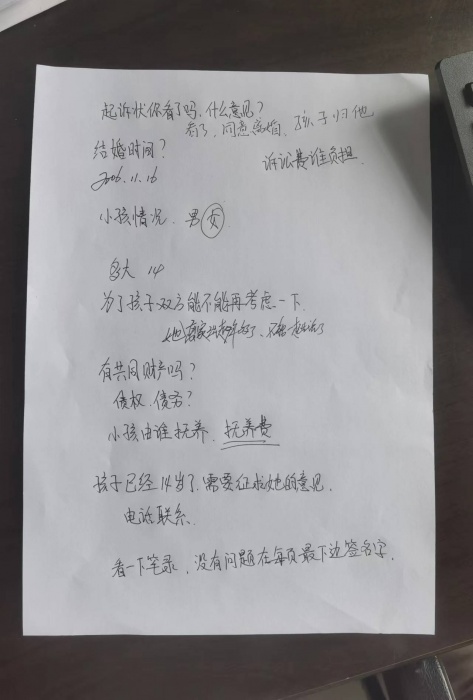 起诉状你看了吗,什么意见?
看了,同意离婚、孩子归他
结婚时间?
诉讼费谁负担
2006.11.16
小孩情况. 男 女
多大 14
为了孩子双方能不能再考虑一下.
她离家出走了, 不能
有共同财产吗?
债权、债务?
小孩由谁抚养. 抚养费
孩子已经14岁了.需要征求她的意见.
电话联系.
看一下笔录,没有问题在每页最下边签名字.